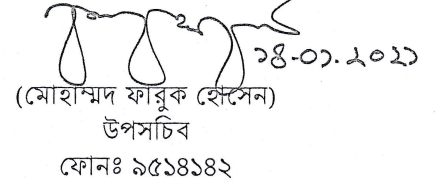 ১৪-০১.২০২১
(মোহাম্মদ ফারুক হোসেন)
উপসচিব
ফোনঃ ৯৫১৪১৪২